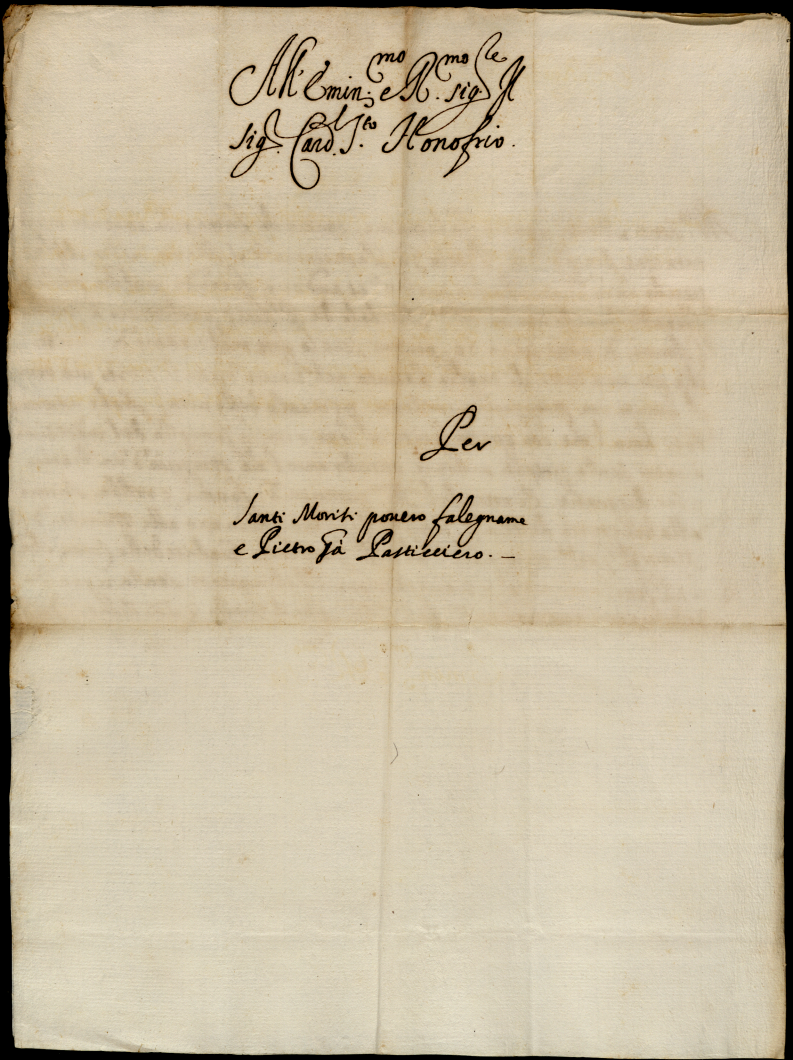 All' Emin.mo e R.mo sig.re Il
sig.r Card.l S.to Honofrio.
Per
Santi Moriti povero falegname
e Pietro Gà Pasticciero. —